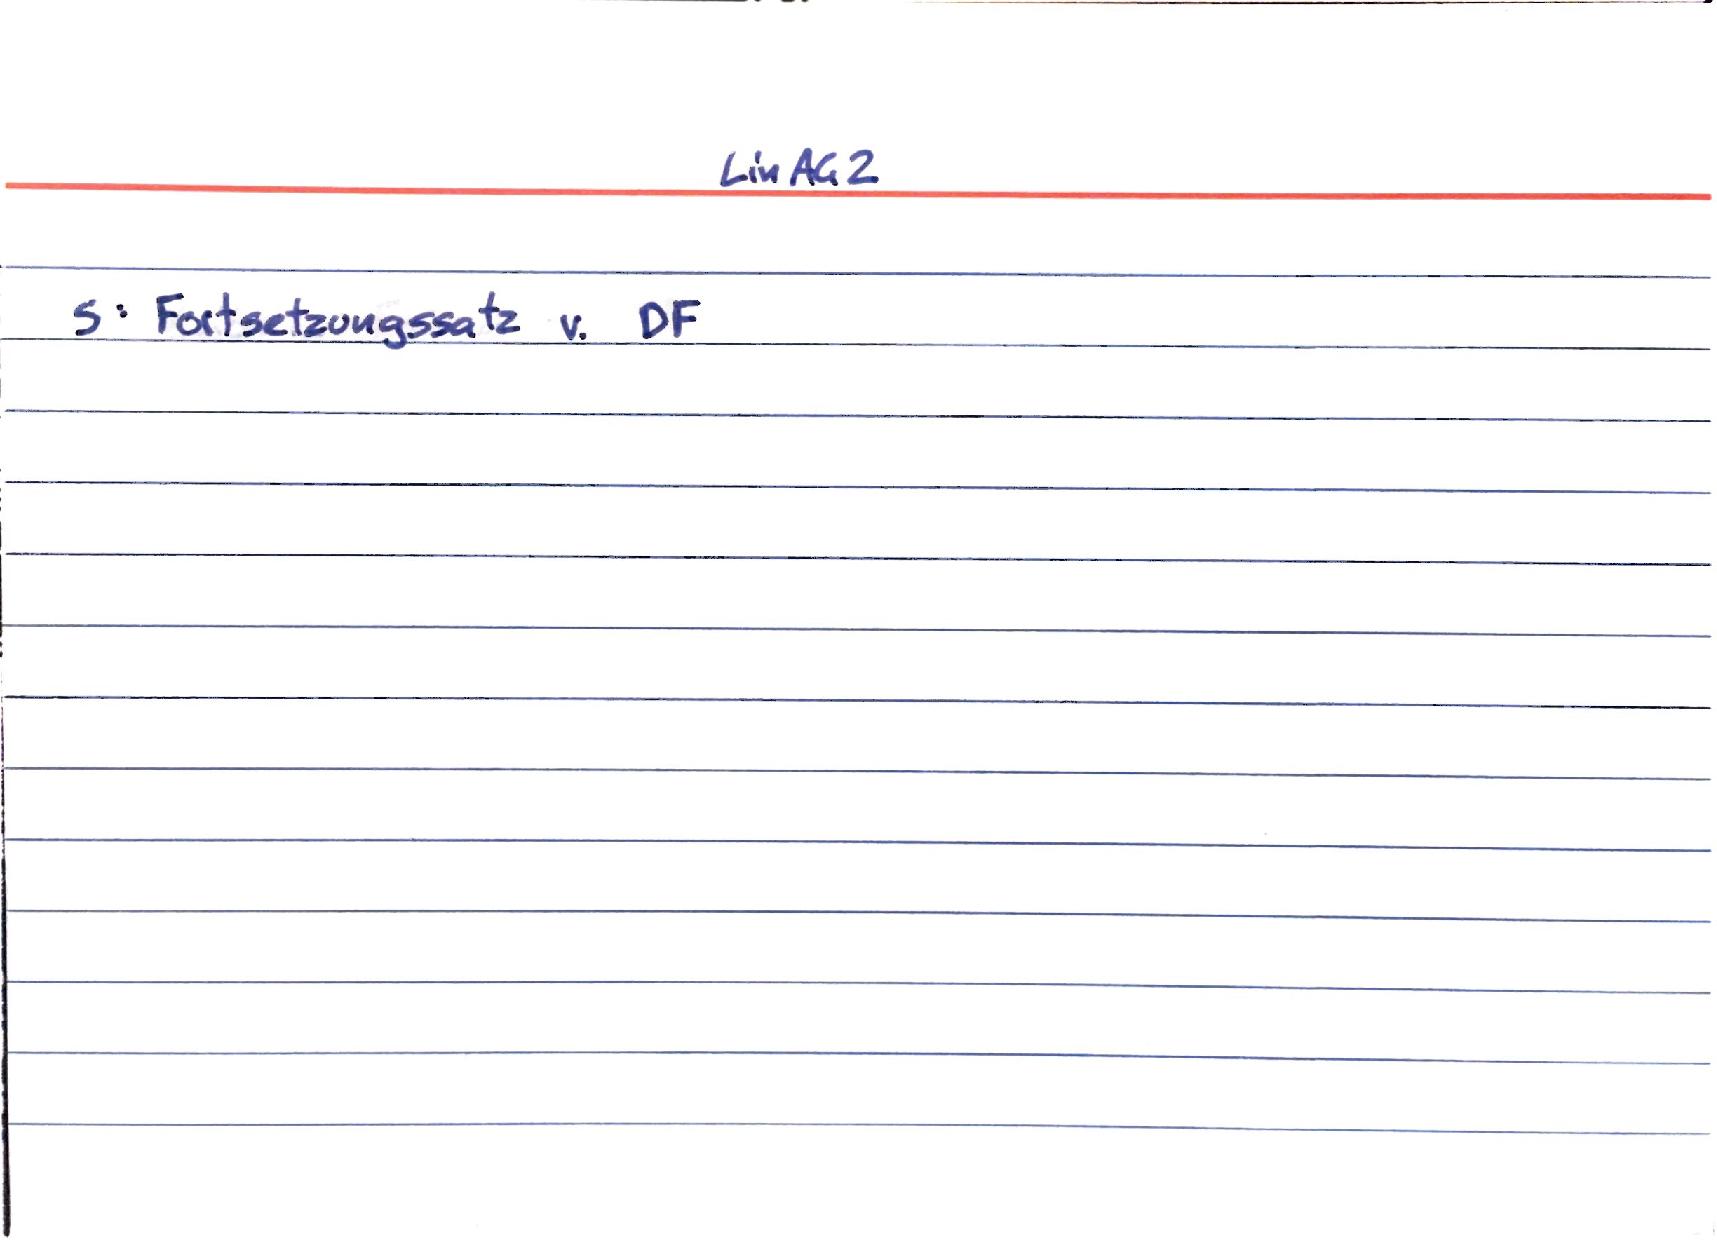 Lin AG 2
S: Fortsetzungssatz v. DF